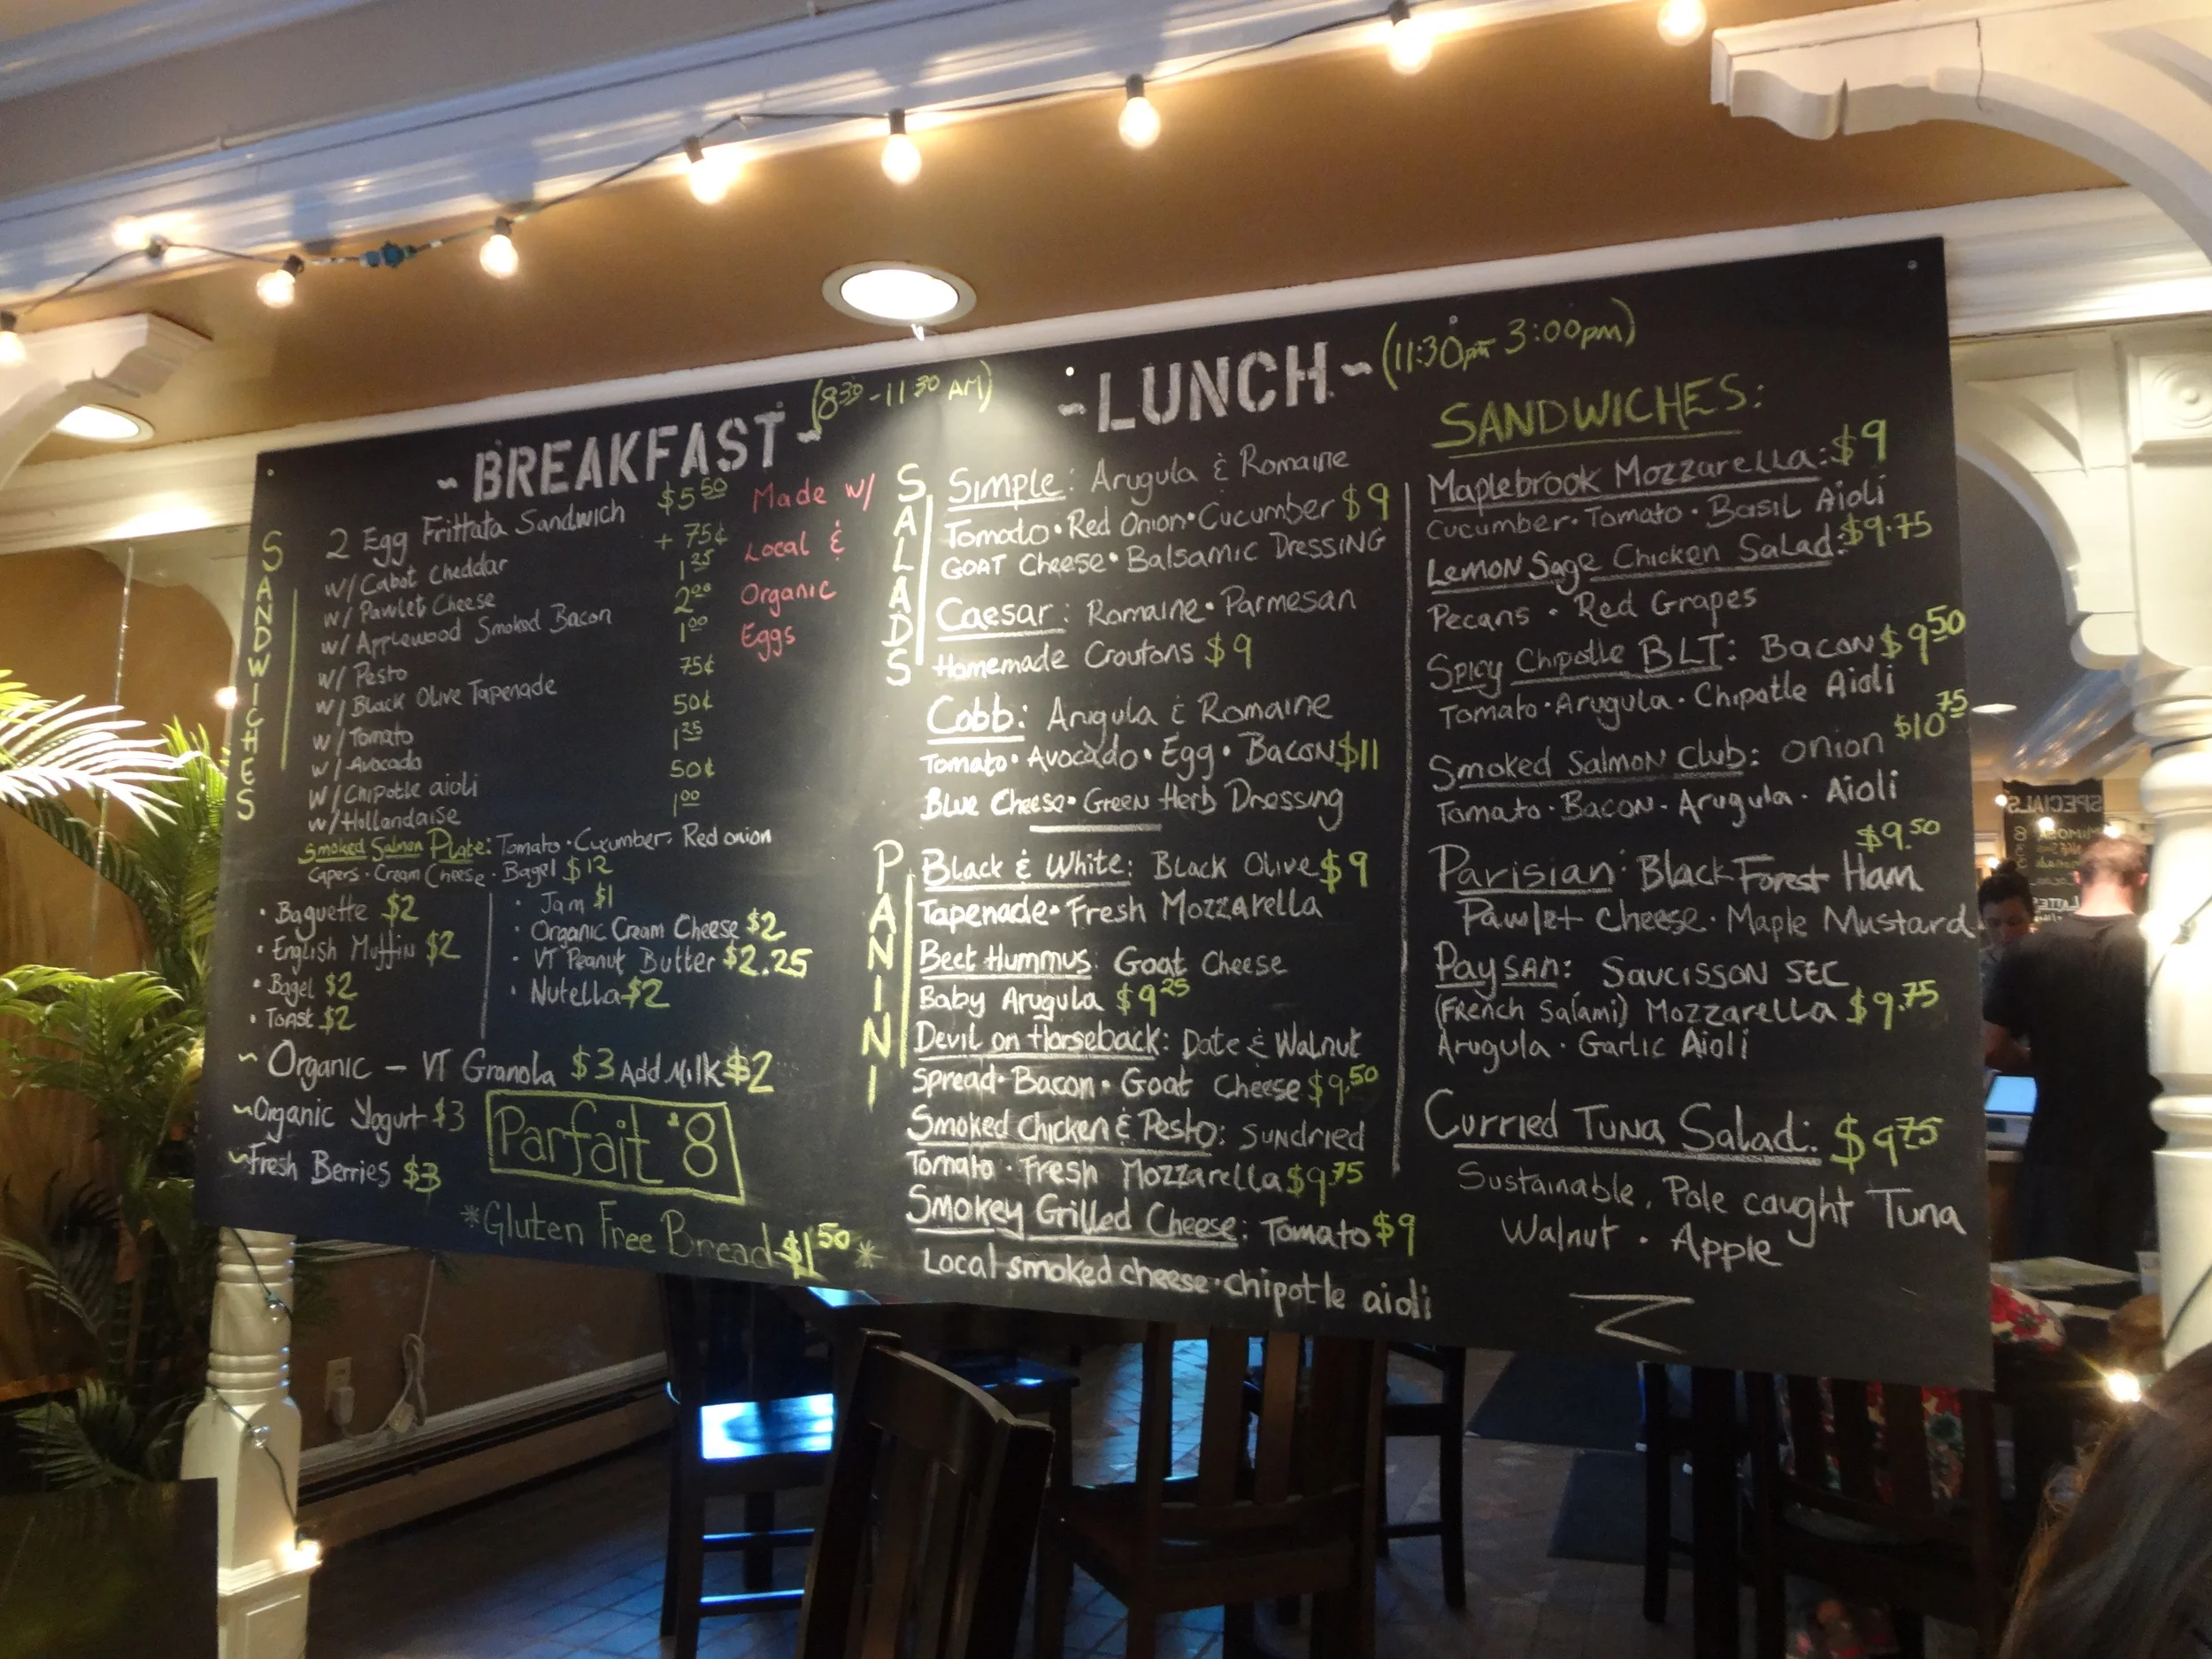 ~BREAKFAST~ (8³⁰-11³⁰ AM)
SANDWICHES
2 Egg Frittata Sandwich $5⁵⁰
w/ Cabot Cheddar + 75¢
w/ Pawlet Cheese 1²⁵
w/ Applewood Smoked Bacon 2⁰⁰
w/ Pesto 1⁰⁰
w/ Black Olive Tapenade 75¢
w/ Tomato 50¢
w/ Avocado 1²⁵
w/ Chipotle aioli 50¢
w/ Hollandaise 1⁰⁰
Made w/
Local &
Organic
Eggs
Smoked Salmon Plate: Tomato · Cucumber · Red onion
Capers · Cream Cheese · Bagel $12
· Baguette $2
· English Muffin $2
· Bagel $2
· Toast $2
· Jam $1
· Organic Cream Cheese $2
· VT Peanut Butter $2.25
· Nutella $2
~ Organic – VT Granola $3 Add Milk $2
~Organic Yogurt $3
~Fresh Berries $3
Parfait $8
*Gluten Free Bread $1⁵⁰ *
~LUNCH~ (11:30pm 3:00pm)
SALADS
Simple: Arugula & Romaine
Tomato · Red Onion · Cucumber $9
GOAT Cheese · Balsamic DRESSING
Caesar: Romaine · Parmesan
Homemade Croutons $9
Cobb: Arugula & Romaine
Tomato · Avocado · Egg · Bacon $11
Blue Cheese · Green Herb Dressing
PANINI
Black & White: Black Olive $9
Tapenade · Fresh Mozzarella
Beet Hummus: Goat Cheese
Baby Arugula $9²⁵
Devil on Horseback: Date & Walnut
Spread · Bacon · Goat Cheese $9.⁵⁰
Smoked Chicken & Pesto: Sundried
Tomato · Fresh Mozzarella $9.⁷⁵
Smokey Grilled Cheese: Tomato $9
Local smoked cheese · chipotle aioli
SANDWICHES:
Maplebrook Mozzarella: $9
Cucumber · Tomato · Basil Aioli
Lemon Sage Chicken Salad: $9.75
Pecans · Red Grapes
Spicy Chipotle BLT: Bacon $9⁵⁰
Tomato · Arugula · Chipotle Aioli
Smoked Salmon Club: onion $10⁷⁵
Tomato · Bacon · Arugula · Aioli
Parisian: Black Forest Ham $9.⁵⁰
Pawlet Cheese · Maple Mustard
Paysan: Saucisson Sec
(French Salami) Mozzarella $9.⁷⁵
Arugula · Garlic Aioli
Curried Tuna Salad: $9⁷⁵
Sustainable, Pole caught Tuna
Walnut · Apple
SPECIALS